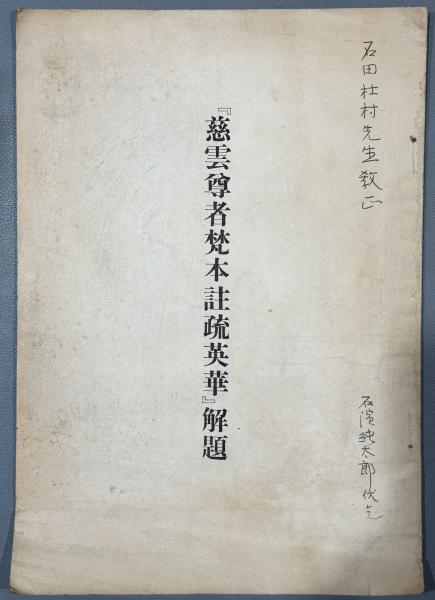 石田杜村先生教正
『慈雲尊者梵本註疏英華』解題
石濱純太郎代乞